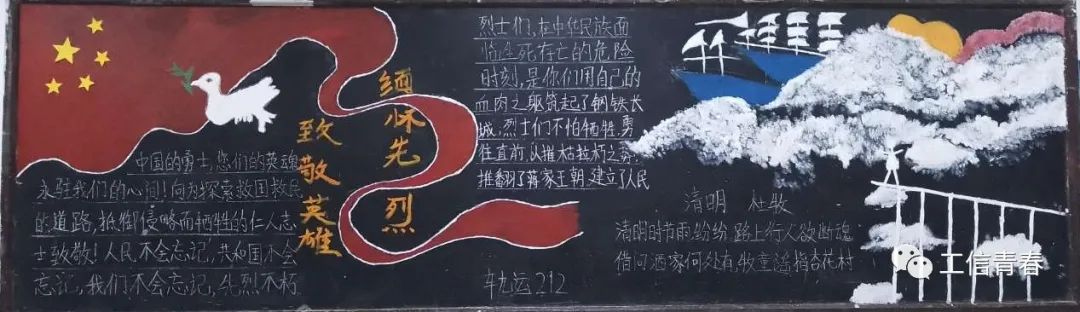 缅怀先烈
致敬英雄
中国的勇士,您们的英魂
永驻我们的心间!向为探索救国救民
的道路,抵御侵略而牺牲的仁人志
士致敬!人民不会忘记,共和国不会
忘记,我们不会忘记,先烈不朽
烈士们,在中华民族面
临生死存亡的危险
时刻,是你们用自己的
血肉之躯筑起了钢铁长
城,烈士们不怕牺牲,勇
往直前,以摧枯拉朽之势,
推翻了蒋家王朝,建立了人民
轨运212
清明 杜牧
清明时节雨纷纷 路上行人欲断魂
借问酒家何处有,牧童遥指杏花村
工信青春